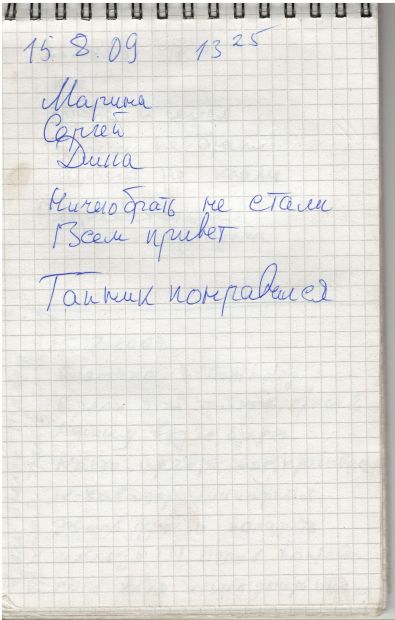 15.8.09 13 25
Марина
Сергей
Дина
Ничего брать не стали
Всем привет
Тайник понравился